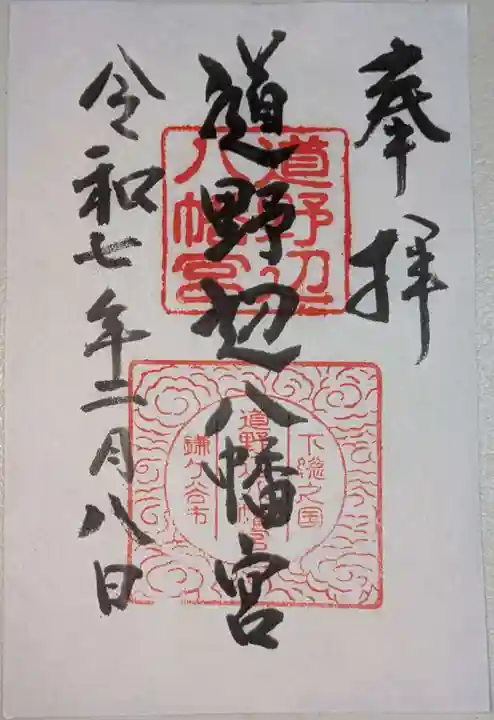 奉拝
道野辺八幡宮
令和七年二月八日
道野辺
八幡宮
下総之国
道野辺八幡宮
鎌ケ谷市